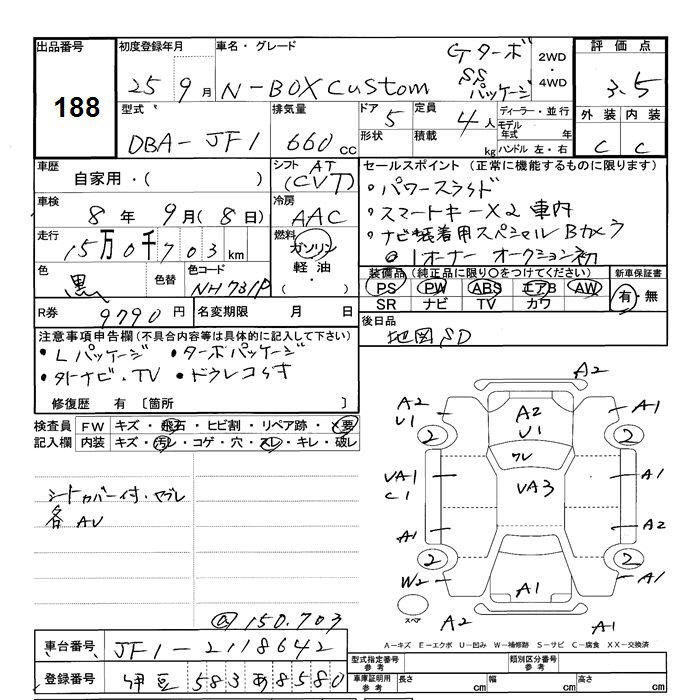 出品番号
188
初度登録年月
25 9月
車名・グレード
N-BOX Custom
Gターボ
SS
パッケージ
2WD
・
4WD
評価点
3.5
外装 内装
C C
型式
DBA-JF1
排気量
660 cc
ドア 5
定員 4人
形状
積載 kg
ディーラー・並行
モデル年式 年
ハンドル 左・右
車歴
自家用・( )
シフト AT
(CVT)
セールスポイント(正常に機能するものに限ります)
・パワースライド
・スマートキーX2 車内
・ナビ装着用スペシャル Bカメラ
◎1オーナー オークション初
車検
8年 9月(8日)
冷房
AAC
走行
15万0千703km
燃料
ガソリン
軽油・
( ・ )
色
黒
色替
色コード
NH731P
装備品(純正品に限り○をつけてください)
PS PW ABS エアB AW
SR ナビ TV カワ
新車保証書
有・無
R券 9790円
名変期限 月 日
後日品
地図SD
注意事項申告欄(不具合内容等は具体的に記入して下さい)
・Lパッケージ ・ターボパッケージ
・外ナビ・TV ・ドラレコらす
修復歴 有〔箇所 〕
検査員記入欄
FW キズ・飛石・ヒビ割・リペア跡・X要
内装 キズ・汚レ・コゲ・穴・スレ・キレ・破レ
シートカバー付・ヤブレ
各AV
@150.703
A2
A2
U1
A1
2
A2
U1
2
ワレ
VA1
C1
VA3
A1
A1
A2
2
2
W2
A1
A1
スペア
A2
A1
A-キズ E-エクボ U-凹み W-補修跡 S-サビ C-腐食 XX-交換済
車台番号 JF1-2118642
登録番号 伊豆 583 あ 8580
型式指定番号
参考
類別区分番号
参考
車庫証明用
参考
長さ cm
幅 cm
高さ cm